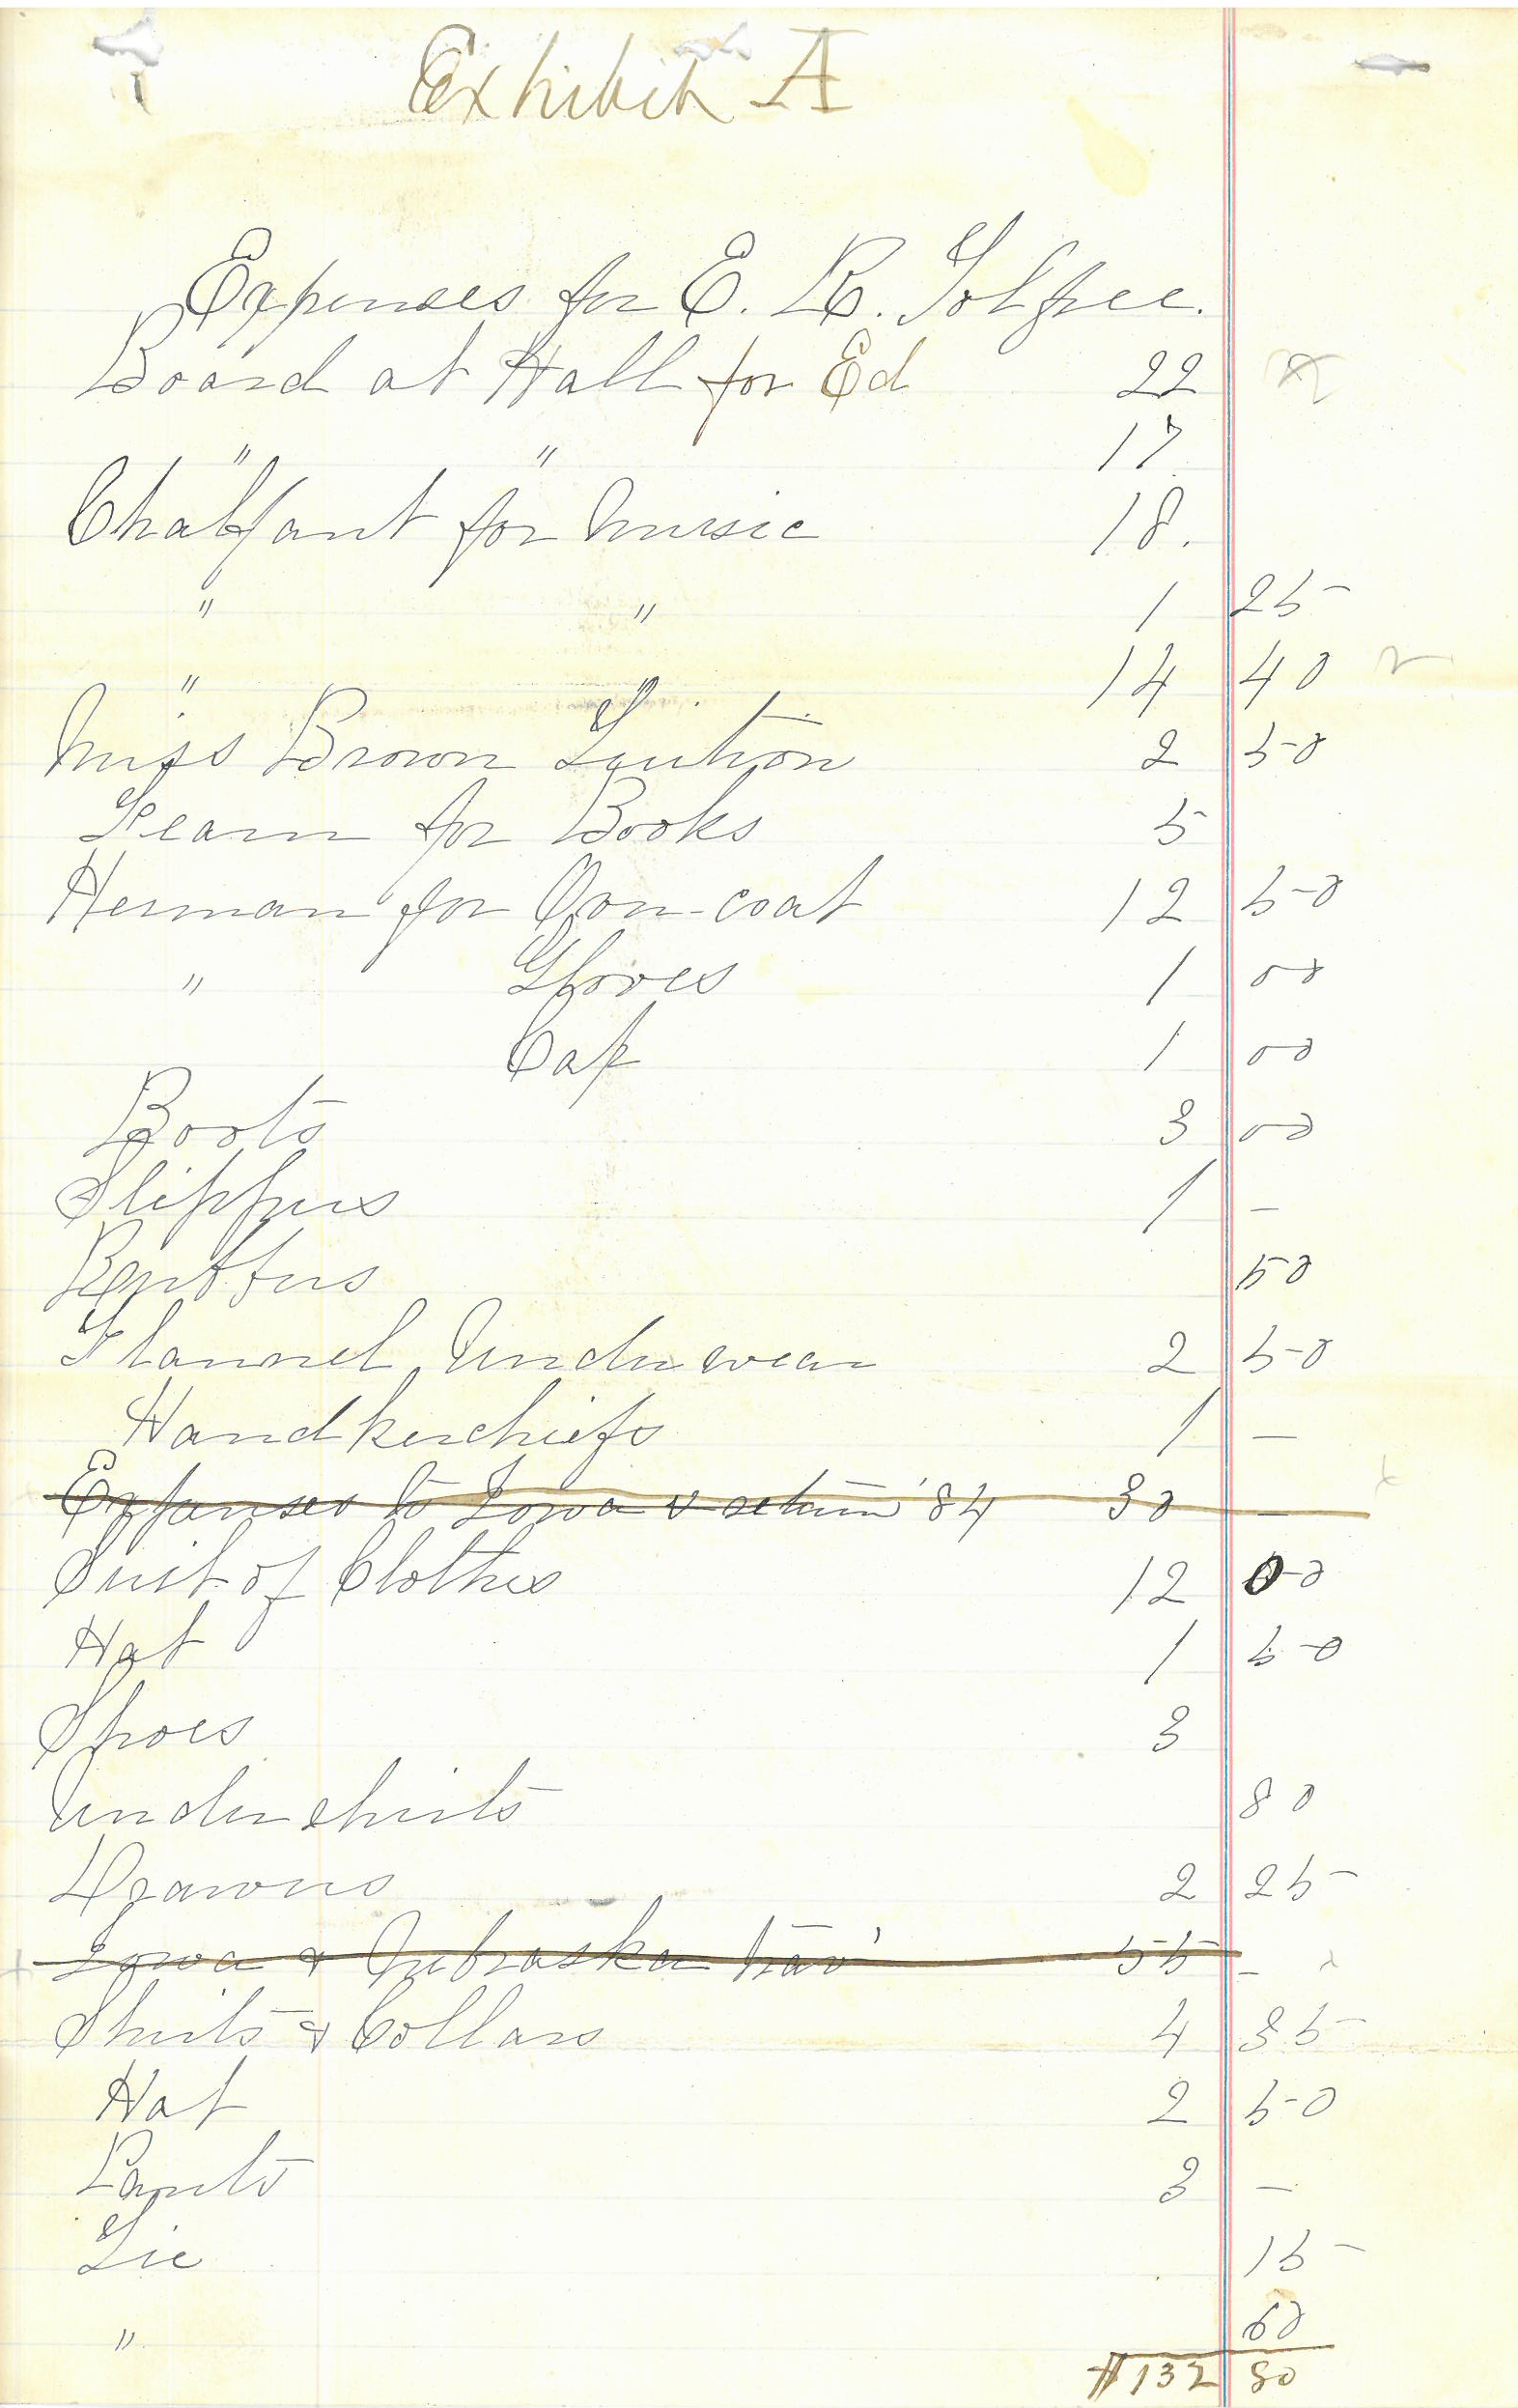 Exhibit A
Expenses for E. R. Tolfree.
Board at Hall for Ed 22
" " 17
Chalfant for Music 18.
" " 1 25
" " 14 40
Miss Brown Tuition 2 50
for Books 5
Herman for Over-coat 12 50
" Gloves 1 00
Cap 1 00
Boots 3 00
Slippers 1 —
50
Flannel Underwear 2 50
Handkerchiefs 1 —
Expenses to Iowa & return '84 30 —
Suit of Clothes 12 00
Hat 1 50
Shoes 3
Undershirts 80
Drawers 2 25
Iowa & Nebraska trav' 55 —
Shirts & Collars 4 35
Hat 2 50
Pants 3 —
Tie 15
" 60
$132 80